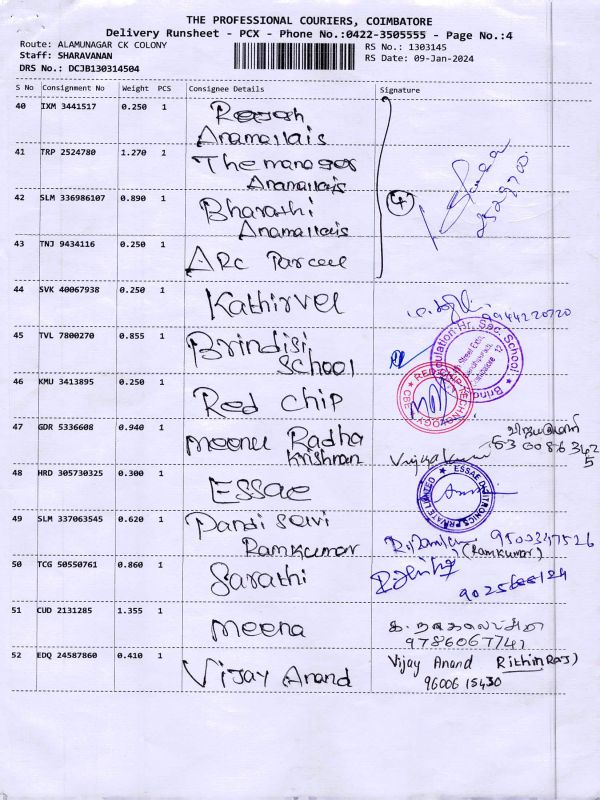 THE PROFESSIONAL COURIERS, COIMBATORE
Delivery Runsheet - PCX - Phone No.:0422-3505555 - Page No.:4
Route: ALAMUNAGAR CK COLONY
RS No.: 1303145
Staff: SHARAVANAN
RS Date: 09-Jan-2024
DRS No.: DCJB130314504
S No Consignment No Weight PCS Consignee Details Signature
40 IXM 3441517 0.250 1
Anamallais
41 TRP 2524780 1.270 1 The manager
Anamallais
42 SLM 336986107 0.890 1 Bharathi
Anamallais
4
43 TNJ 9434116 0.250 1 ARC Parcel
44 SVK 40067938 0.250 1 Kathirvel
9944220720
45 TVL 7800270 0.855 1 Brindisi
School
Hr. Sec. School
46 KMU 3413895 0.250 1 Red chip
RED CHIP TECHNOLOGY CBE
47 GDR 5336608 0.940 1 meenu Radha
Krishnan
Vijayakumar
48 HRD 305730325 0.300 1 ESSAE
ESSAE DIGITRONICS PRIVATE LIMITED
49 SLM 337063545 0.620 1 Pandi Selvi
Ramkumar
9500347526
(Ramkumar)
50 TCG 50550761 0.860 1 Sarathi
51 CUD 2131285 1.355 1 meena
9786067741
52 EDQ 24587860 0.410 1 Vijay Anand
Vijay Anand (RithinRAJ)
96006 15430